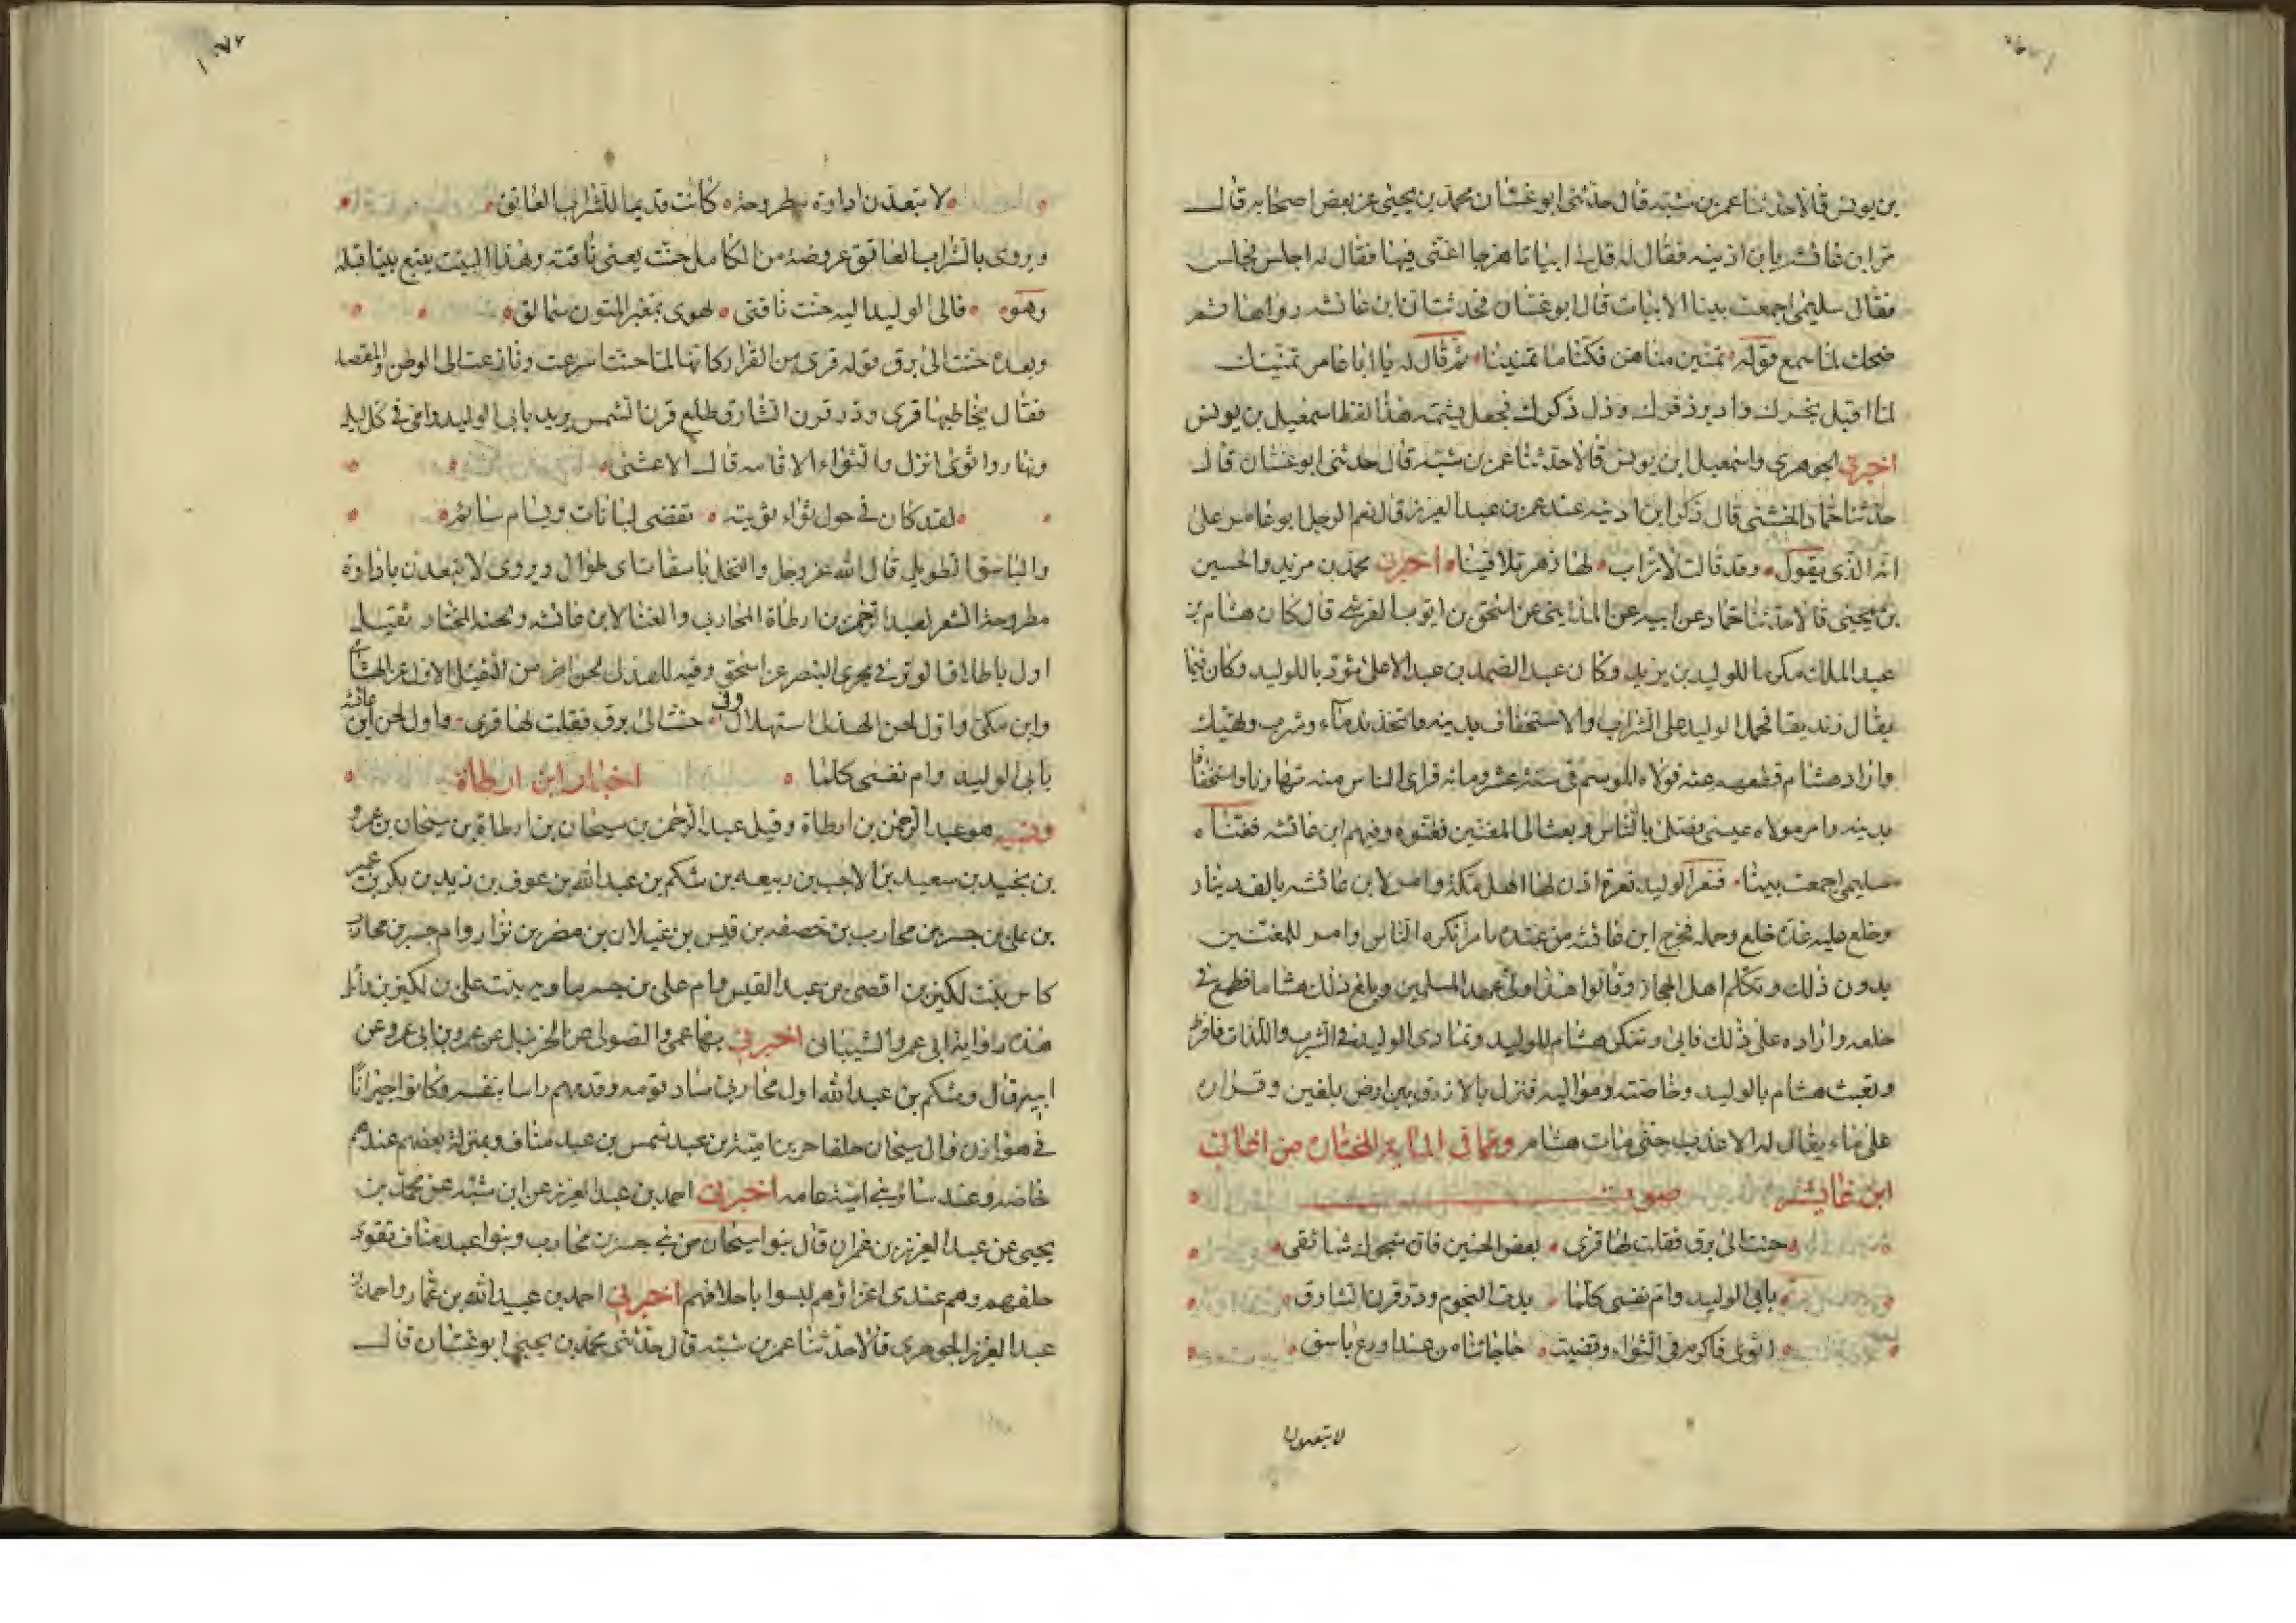 بن يونس قالا حدثنا عمر بن شبه قال حدثنى ابو غسان محمد بن يحيى عن بعض اصحابه قال
مر ابن عائشه بابن اذينه فقال له قل ابياتا هزجا اغنى فيها فقال له اجلس فجلس
فقال سليمى اجمعت بينا الابيات قال ابو غسان فحدثت ان ابن عائشه رواها ثم
ضحك لما سمع قوله تمنين مناهن فكنا ما تمنينا ثم قال له يا ابا عامر تمنينك
لما اقبل بخرك وادبر ذفرك وذبل ذكرك فجعل يشتمه هذا لفظ اسمعيل بن يونس
اخبرنى الجوهرى واسمعيل ابن يونس قالا حدثنا عمر بن شبه قال حدثنى ابو غسان قال
حدثنا حماد الخشنى قال ذكر ابن اذينه عند عمر بن عبد العزيز قال نعم الرجل ابو عامر على
انه الذى يقول وقد قالت لاتراب لها زهر تلاقينا اخبرنى محمد بن مزيد والحسين
بن يحيى قالا حدثنا حماد عن ابيه عن المداينى عن اسحق بن ايوب القرشى قال كان هشام بن
عبد الملك مكرما للوليد بن يزيد وكان عبد الصمد بن عبد الاعلى مؤدبا للوليد وكان فيما
يقال زنديقا فحمل الوليد على الشراب والاستخفاف بدينه فاتخذ ندماء وشرب وتهتك
واراد هشام قطعهم عنه فولاه الموسم فى سنه ست عشر ومائه فراى الناس منه تهاونا واستخفافا
بدينه وامر مولاه عيسى يصلى بالناس وبعث الى المغنين فغنوه وفيهم ابن عائشه فغناه
سليمى اجمعت بينا فنعر الوليد نعرة اذن لها اهل مكة وامر لابن عائشه بالف دينار
وخلع عليه عدة خلع وحمله فخرج ابن عائشه من عنده بامر انكره الناس وامر للمغنين
بدون ذلك وتكلم اهل الحجاز وقالوا هذا ولى عهد المسلمين وبلغ ذلك هشاما فطمع فى
خلعه واراده على ذلك فابى وتنكر هشام للوليد وتمادى الوليد فى الشرب واللذات فافرط
وتعبث هشام بالوليد وخاصته ومواليه فنزل بالازرق بين ارض بلقين وفزاره
على ماء يقال له الاغذف حتى مات هشام ومما فى الماية المختاره من اغانى
ابن عائشه صوت
حنت الى برق فقلت لها قرى بعض الحنين فان شجوك شائقى
بابى الوليد وام نفسى كلما بدت النجوم وذر قرن الشارق
اثوى فاكرم فى الثواء وقضيت حاجاتنا من عند اروع باسق
لا تبعدن
لا تبعدن اداوة مطروحه كانت قديما للشراب العاتق
ويروى بالشراب العاتق عروضه من الكامل حنت يعنى ناقته وهذا البيت يتبع بيتا قبله
وهو فالى الوليد اليه حنت ناقتى تهوى بمغبر المتون سمالق
وبعده حنت الى برق قوله قرى من القرار كانها لما حنت اسرعت ونازعت الى الوطن والمقصد
فقال يخاطبها قرى وذر قرن الشارق طلع قرن الشمس يريد بابى الوليد وامى فى كل ليل
ونهار واثوى انزل والثواء الاقامه قال الاعشى
لقد كان فى حول ثواء ثويته تقضى لبانات ويسام سائم
والباسق الطويل قال الله عز وجل والنخل باسقات اى طوال ويروى لا تبعدن باداوة
مطروحة الشعر لعبد الرحمن بن ارطاة المحاربى والغنا لابن عائشه ولحنه المختار ثقيل
اول باطلاق الوتر فى مجرى البنصر عن اسحق وفيه للهذلى لحن اخر من الثقيل الاول عن الهشامى
وابن مكى واول لحن الهذلى استهلال فى حنت الى برق فقلت لها قرى واول لحن ابن عائشه
بابى الوليد وام نفسى كلما اخبار ابن ارطاة
ونسبه هو عبد الرحمن بن ارطاة وقيل عبد الرحمن بن سيحان بن ارطاة بن سيحان بن عمرو
بن نجيد بن سعيد بن الاحب بن ربيعه بن شكم بن عبد الله بن عوف بن زيد بن بكر بن عمير
بن على بن جسر بن محارب بن خصفه بن قيس بن عيلان بن مضر بن نزار وام جسر بن محارب
كاس بنت لكيز بن افصى بن عبد القيس وام على بن جسر ماويه بنت على بن لكيز بن وائل
هذه رواية ابى عمرو الشيبانى اخبرنى بها عمى والصولى عن الحزنبل عن عمرو بن ابى عمرو عن
ابيه قال وشكم بن عبد الله اول محاربى ساد قومه وقدمهم راسا بنفسه وكانوا جيرانا
فى هوازن وال سيحان حلفا حرب بن امية بن عبد شمس بن عبد مناف وبمنزلة بعضهم عندهم
خاصه وعند سائر بنى امية عامه اخبرنى احمد بن عبد العزيز عن ابن شبه عن محمد بن
يحيى عن عبد العزيز بن عمران قال بنوا سيحان من بنى جسر بن محارب وبنوا عبد مناف تقوى
حلفهم وهم عندى اعزاؤهم ليسوا باحلافهم اخبرنى احمد بن عبيد الله بن عمار واحمد بن
عبد العزيز الجوهرى قالا حدثنا عمر بن شبه قال حدثنى محمد بن يحيى ابو غسان قال